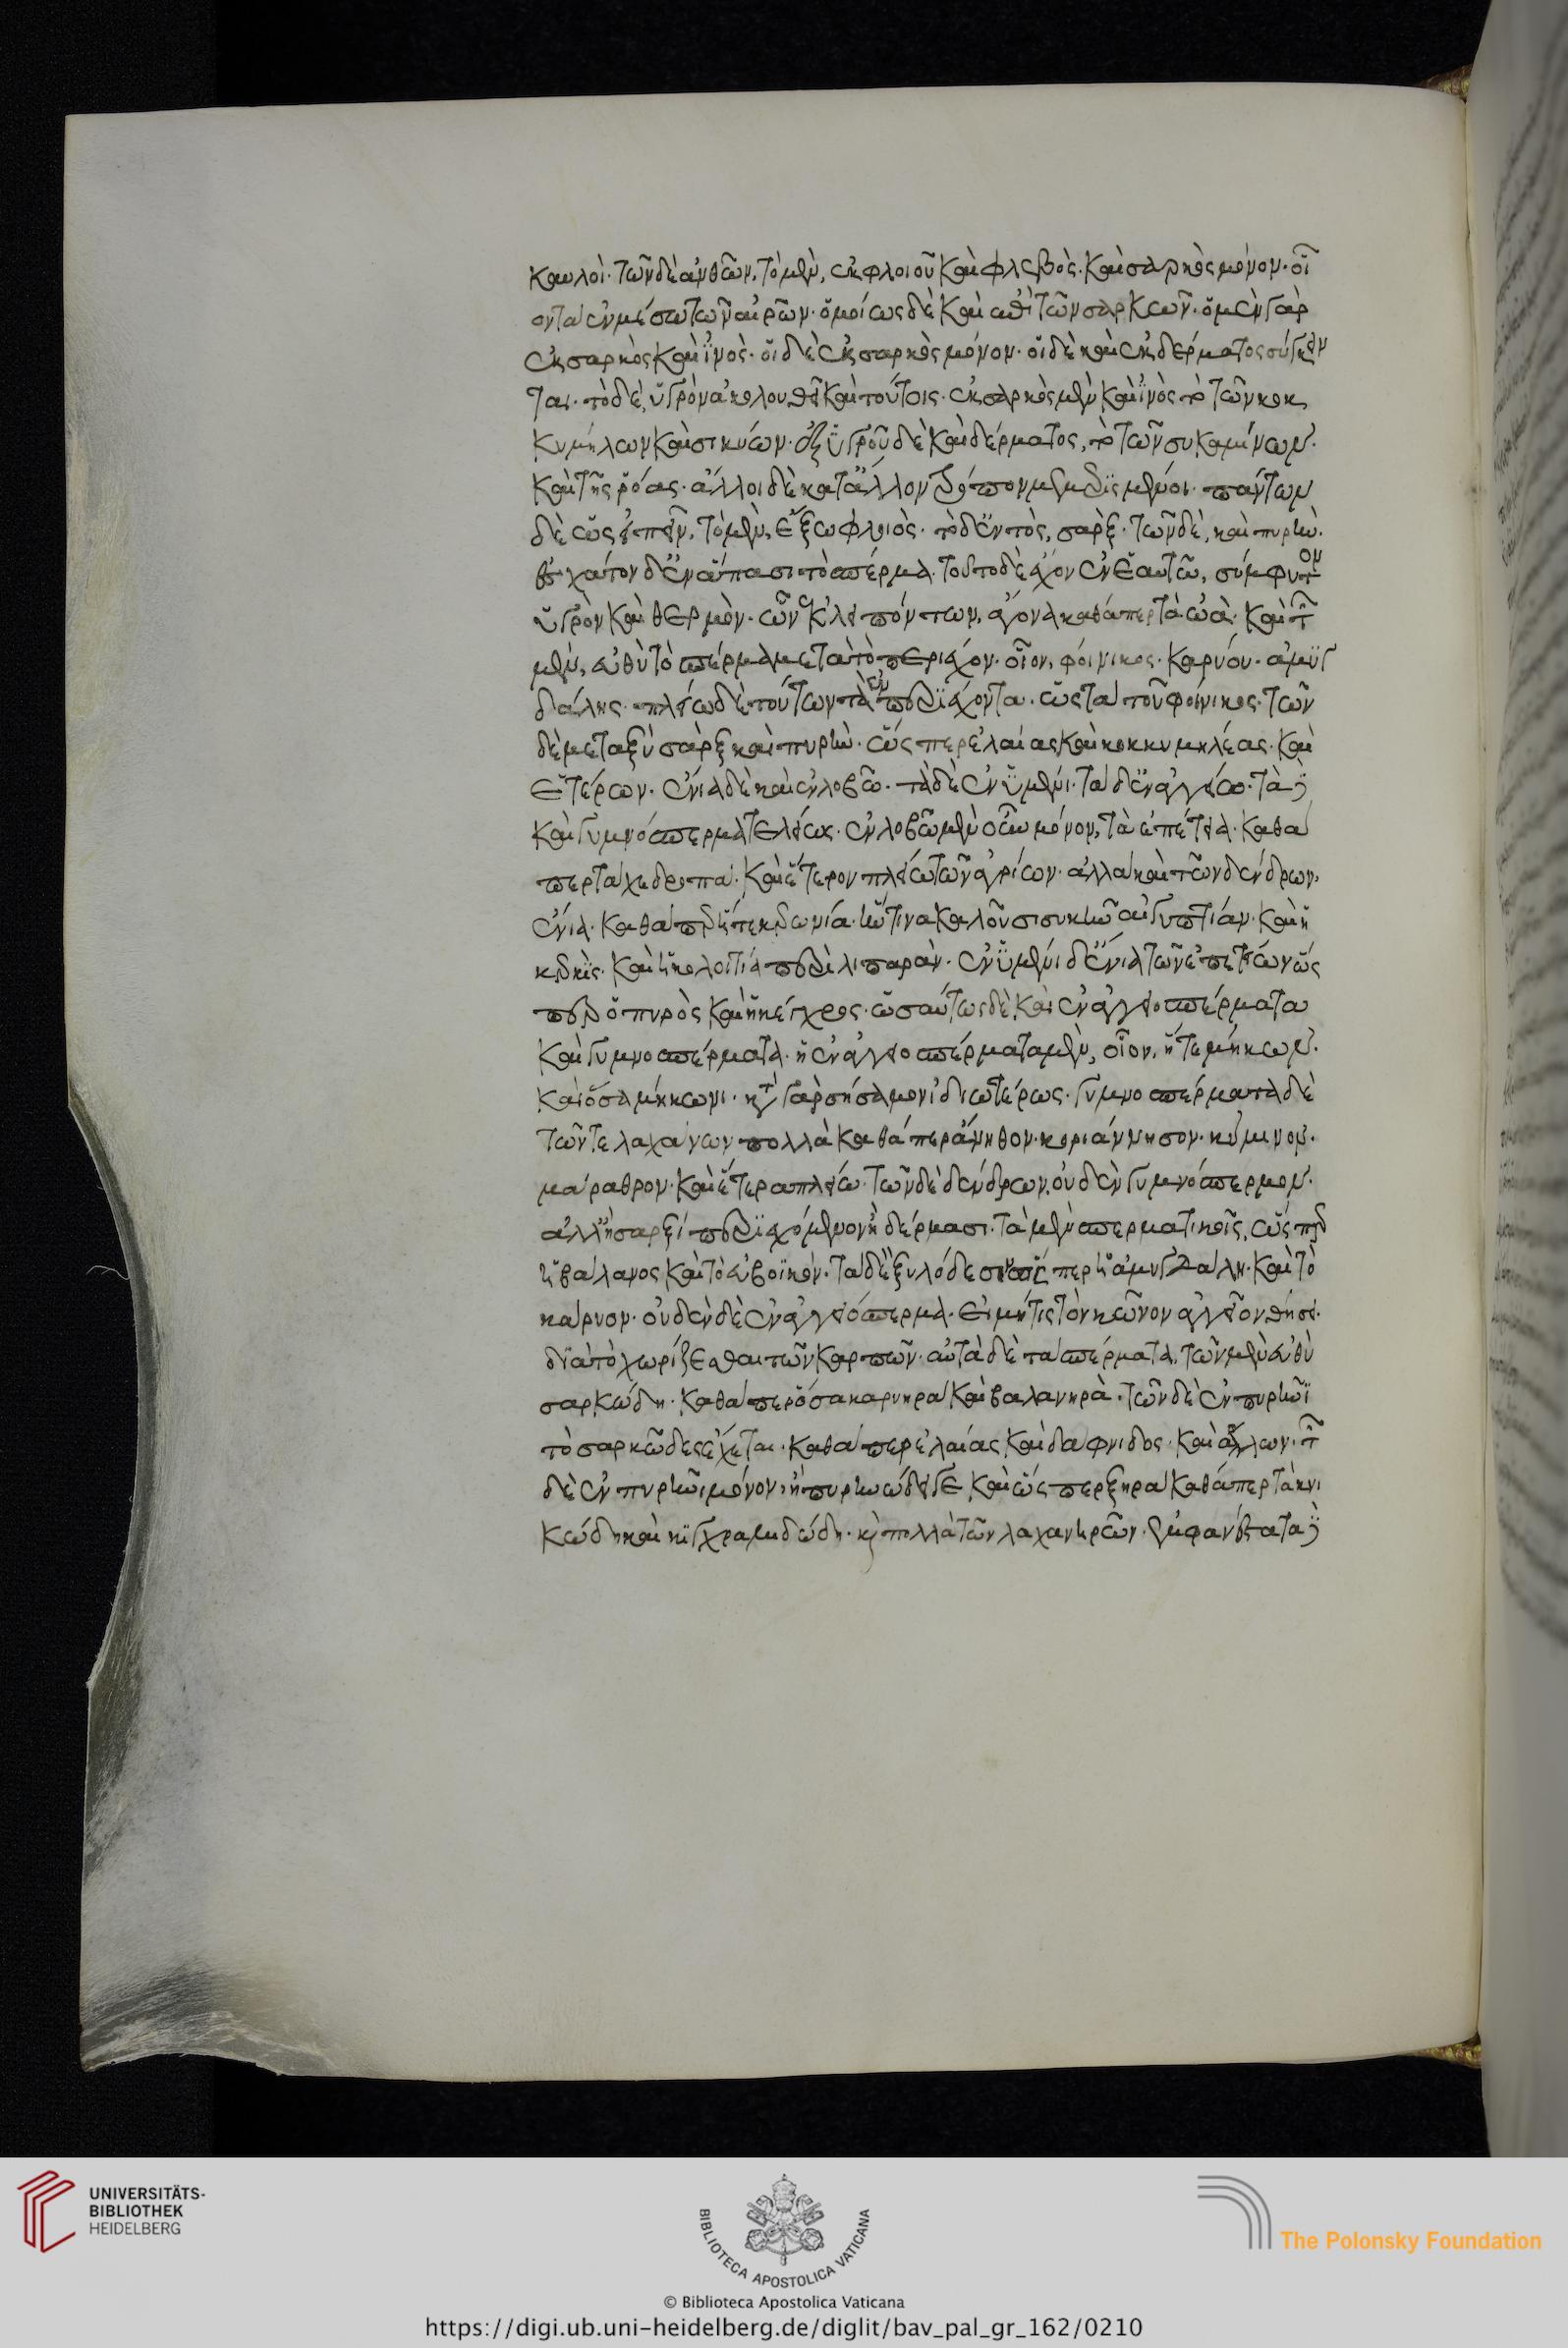 καυλοί· τῶν δὲ ἀνθῶν, τὸ μὲν, ἐκ φλοιοῦ καὶ φλεβὸς· καὶ σαρκὸς μόνον· οἷ
ον τὰ ἐν μέσω τῶν ἀρῶν· ὁμοίως δὲ καὶ ἐπὶ τῶν σαρκῶν· ὁ μὲν γὰρ
ἐκ σαρκὸς καὶ ἰνὸς· οἱ δὲ ἐκ σαρκὸς μόνον· οἱ δὲ καὶ ἐκ δέρματος σύγκειν
ται· τὸ δὲ, ὑγρὸν ἀκολουθεῖ καὶ τούτοις· ἐκ σαρκὸς μὲν καὶ ἰνὸς τὸ τῶν κοκ
κυμήλων καὶ σικύων· ἐξ ὑγροῦ δὲ καὶ δέρματος, τὸ τῶν συκαμίνων·
καὶ τῆς ῥόας· ἄλλοι δὲ κατ' ἄλλον τρόπον μεμερισμένοι· πάντων
δὲ ὡς εἰπεῖν, τὸ μὲν, ἔξω φλοιὸς· τὸ δ' ἐντὸς, σάρξ· τῶν δὲ, καὶ πυρὴν·
ἔσχατον δ' ἐν ἅπασι τὸ σπέρμα· τοῦτο δὲ ἔχον ἐν ἑαυτῶ, σύμφυτον
ὑγρὸν καὶ θερμὸν· ὧν ἐκλειπόντων, ἄγονα καθάπερ τὰ ὠά· καὶ τῶν
μὲν, εὐθὺ τὸ σπέρμα μετὰ τὸ περιέχον· οἷον, φοίνικος· καρύου· ἀμυγ
δάλης· πλείω δὲ τούτων τὰ ἐμπεριέχοντα· ὡς τὰ τοῦ φοίνικος· τῶν
δὲ μεταξὺ σὰρξ καὶ πυρὴν· ὥσπερ ἐλαίας καὶ κοκκυμηλέας· καὶ
ἑτέρων· ἔνια δὲ καὶ ἐν λοβῶ· τὰ δὲ ἐν ὑμένι· τὰ δ' ἐν ἀγγείω· τὰ δὲ
καὶ γυμνόσπερμα τελείως· ἐν λοβῶ μὲν οὐ μόνον, τὰ ἐπέτεια· καθά
περ τὰ χεδροπά· καὶ ἕτερον πλείω τῶν ἀγρίων· ἀλλὰ καὶ τῶν δένδρων,
ἔνια· καθάπερ ἥ τε κερωνία· ἥν τινα καλοῦσι συκῆν αἰγυπτίαν· καὶ ἡ
κερκὶς· καὶ ἡ κολοιτία περὶ λιπαρὰν· ἐν ὑμένι δ' ἔνια τῶν ἐπετείων ὥς
περ ὁ πυρὸς καὶ ἡ κέγχρος· ὡσαύτως δὲ καὶ ἐν ἀγγειοσπέρματα
καὶ γυμνοσπέρματα· ἢ ἐν ἀγγειοσπέρματα μὲν, οἷον, ἥ τε μήκων·
καὶ ὅσα μήκωνι· τὸ γὰρ σήσαμον ἰδιωτέρως· γυμνοσπέρματα δὲ
τῶν τε λαχάνων πολλὰ καθάπερ ἄνηθον· κοριάννησον· κύμινον·
μάραθρον· καὶ ἕτερα πλείω· τῶν δὲ δένδρων, οὐδὲν γυμνόσπερμον·
ἀλλ' ἢ σαρξὶ περιεχόμενον ἢ δέρμασι· τὰ μὲν σπερματικοῖς, ὥσπερ
ἡ βάλανος καὶ τὸ εὐβοϊκόν· τὰ δὲ ξυλώδεσιν ὥσπερ ἡ ἀμυγδάλη· καὶ τὸ
κάρυον· οὐδὲν δὲ ἐν ἀγγειόσπερμα· εἰ μή τις τὸν κῶνον ἀγγεῖον θήσει·
διὰ τὸ χωρίζεσθαι τῶν καρπῶν· αὐτὰ δὲ τὰ σπέρματα, τῶν μὲν εὐθὺ
σαρκώδη· καθάπερ ὅσα καρυηρὰ καὶ βαλανηρὰ· τῶν δὲ ἐν πυρῆνι
τὸ σαρκῶδες ἔχεται· καθάπερ ἐλαίας καὶ δαφνίδος· καὶ ἄλλων· τῶν
δὲ ἐν πυρῆνι μόνον, ἢ πυρηνώδει γε καὶ ὥσπερ ξηρὰ καθάπερ τὰ κνι
κώδη καὶ κεγχραμιδώδη· καὶ πολλὰ τῶν λαχανηρῶν· ἐμφανέστατα δὲ
UNIVERSITÄTS-
BIBLIOTHEK
HEIDELBERG
BIBLIOTECA APOSTOLICA VATICANA
The Polonsky Foundation
© Biblioteca Apostolica Vaticana
https://digi.ub.uni-heidelberg.de/diglit/bav_pal_gr_162/0210